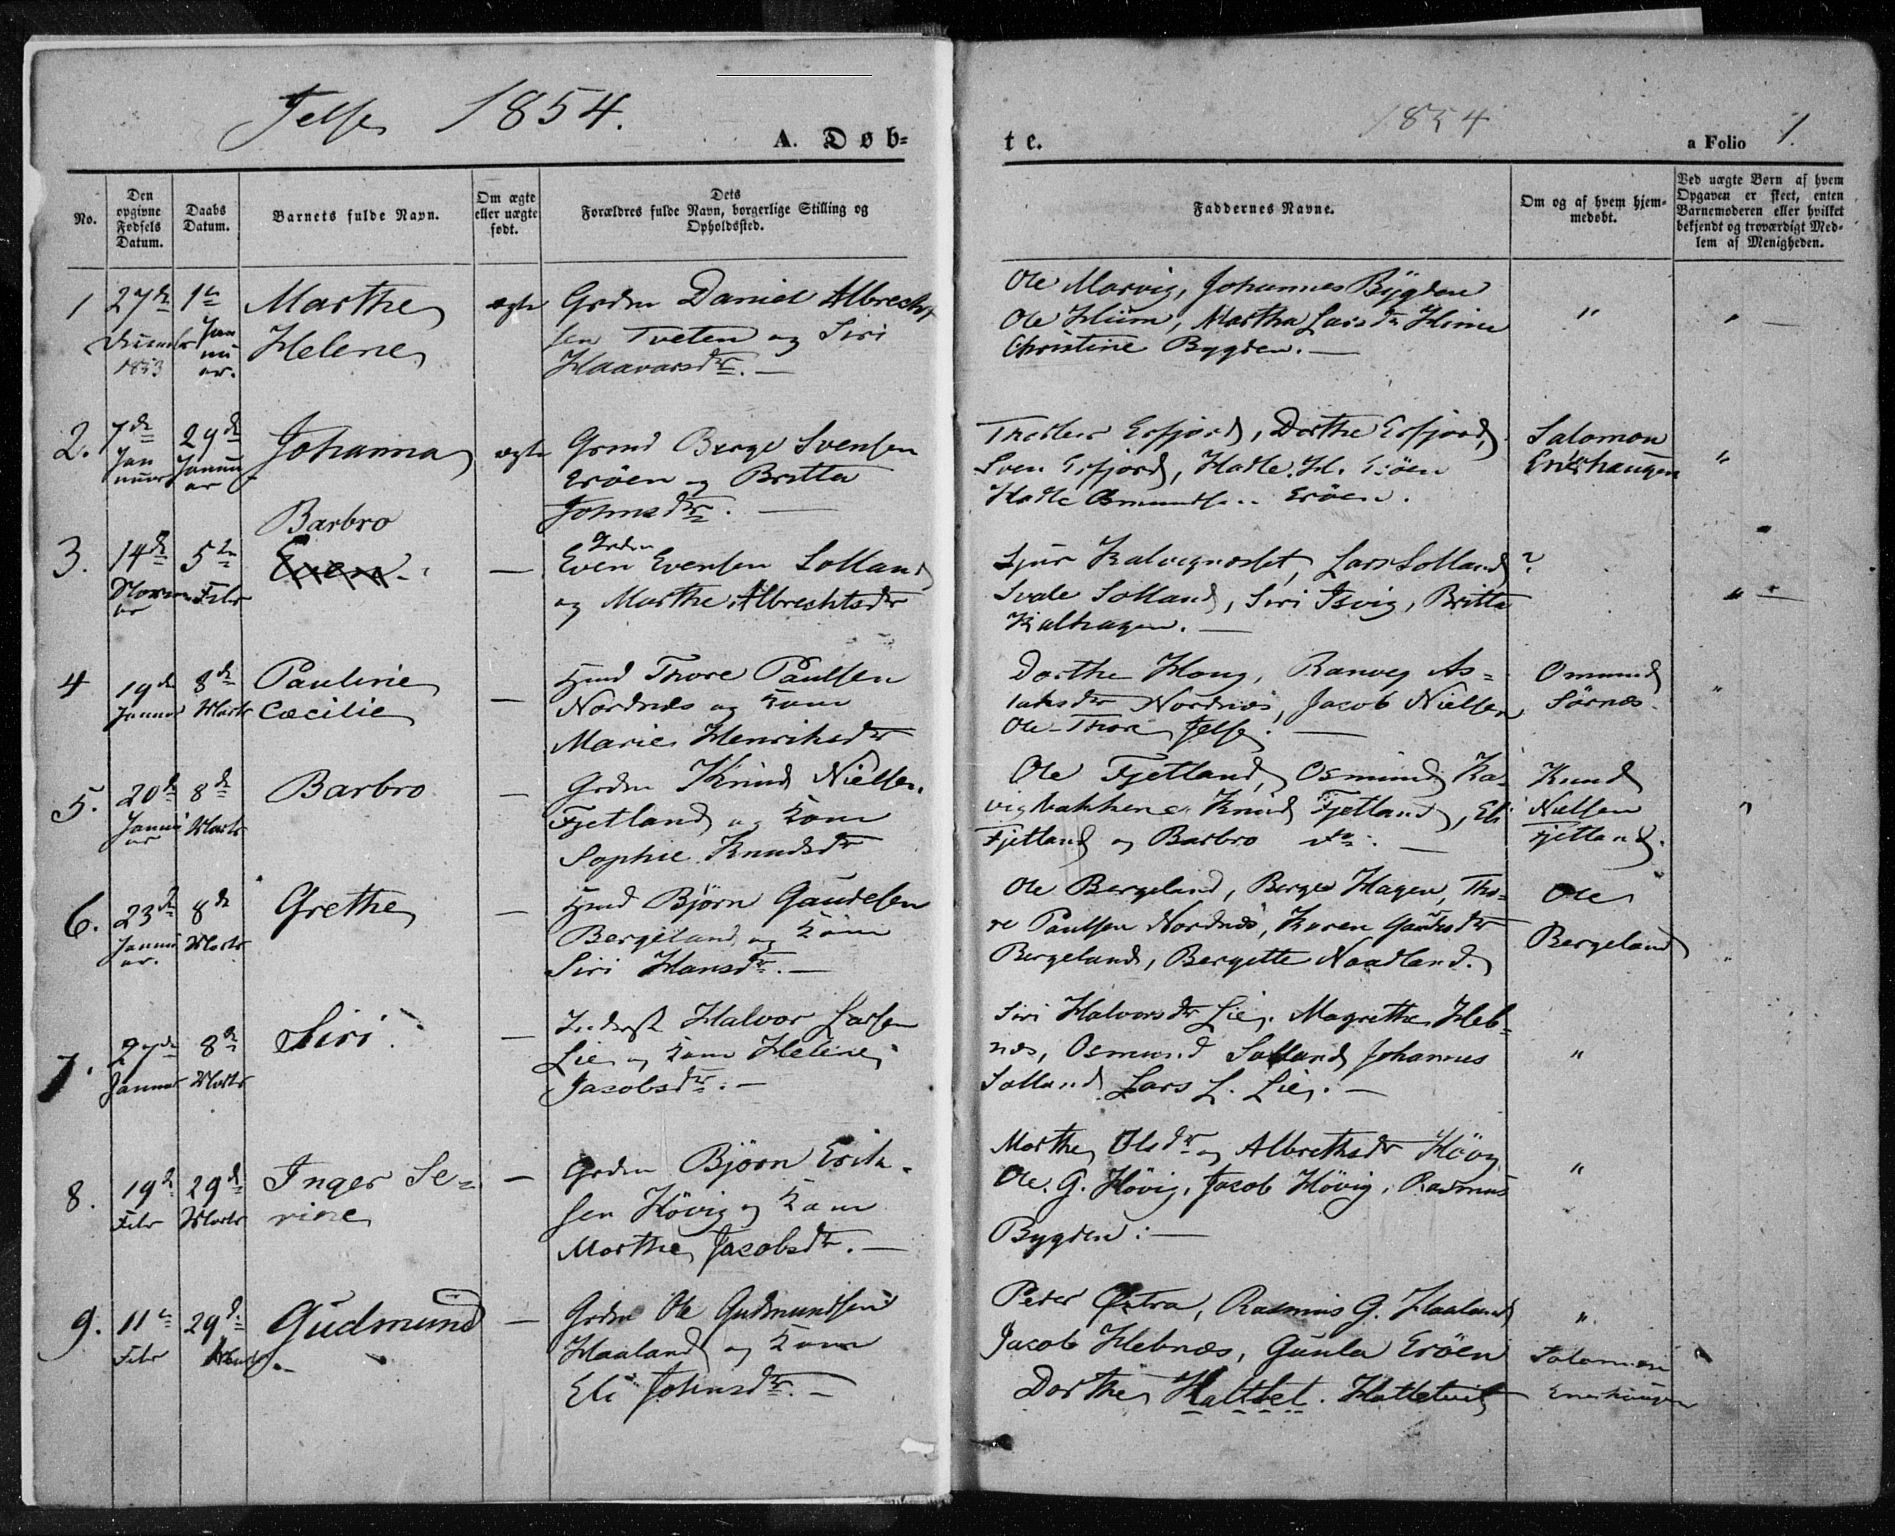 Jelse 1854.
A. Døb-
te.
1854
a Folio 1.
No.
Den opgivne Fødsels Datum.
Daabs Datum.
Barnets fulde Navn.
Om ægte eller uægte født.
Dets Forældres fulde Navn, borgerlige Stilling og Opholdssted.
Faddernes Navne.
Om og af hvem hjem-
medøbt.
Ved uægte Børn af hvem
Opgaven er skeet, enten
Barnemoderen eller hvilket
bekjendt og troværdigt Med-
lem af Menigheden.
1
27de
1853
1te
Januar.
Marthe
Helene
ægte
Grdm Daniel Albrecht
sen Tveten og Siri
Haavarsdtr. —
Ole Marvig, Johannes Bÿgden
Ole Hiim, Martha Larsdtr Hiim
Christine Bygden. —
"
" —
2.
7de
Januar
29de
Januar
Johanna
ægte
Grmd Berge Svensen
Erøen og Britta
Johnsdtr. —
Erfjord, Dorthe Erfjord,
Sven Erfjord, Hadle H. Erøen
Hadle Osmundsen Erøen.
Salomon
Enershaugen
"
3.
14de
5te
Febr
Barbro
Even.
—
Grdm
Even Evensen Solland
og Marthe Albrechtsdtr
Sjur Kalvignesset, Lars Solland
Svale Solland, Siri Isvig, Britta
Kalhagen. —
?
" —
4
19de
Januar
8de
Marts
Pauline
Cæcilie
—
Hmd Thore Paulsen
Nordnæs og Kone
Marie Henriksdtr
Dorthe Houg, Ranveg As-
laksdtr Nordnæs, Jacob Nielsen
Ole Thore Jelse. —
Omund
Sørnæs.
"
5.
20de
Januar
8de
Marts
Barbro
—
Grdm Knud Nielsen
Fjetland og Kone
Sophie Knudsdtr
Ole Fjetland, Osmund Ka-
vigbakkene Knud Fjetland, Eli
Fjetland og Barbro do. —
Knud
Nielsen
Fjetland.
"
6.
23de
Januar.
8de
Marts
Grethe
—
Hmd Bjørn Gaudesen
Bergeland og Kone
Siri Hansdtr. —
Ole Bergeland, Berge Hagen, Tho-
re Paulsen Nordnæs, Karen Gaudesdtr
Bergeland, Bergette Naadland.
Ole
Bergeland
"
7.
27de
Januar
8de
Marts
Siri
—
Inderst Halvor Larsen
Lie og Kone Helene
Jacobsdtr. —
Siri Halvorsdtr Lie, Magrethe Heb-
næs, Osmund Solland Johannes
Solland Lars L. Lie. —
"
8.
19de
Febr
29de
Marts
Inger Se-
rine
—
Grdm Bjørn Erik-
sen Høvig og Kone
Marthe Jacobsdtr. —
Marthe Olsdtr og Albrethsdtr Høvig
Ole. G. Høvig, Jacob Høvig, Rasmus
Bygden. —
"
9.
11te
Febr
29de
Marts
Gudmund
—
Grdm Ole Gudmundsen
Haaland og Kone
Eli Johnsdtr. —
Peder Østra, Rasmus G. Haaland
Jacob Hebnæs, Gunla Erøen
Dorthe Hattlet. Hatletvet
"
Salomon
Enershaugen